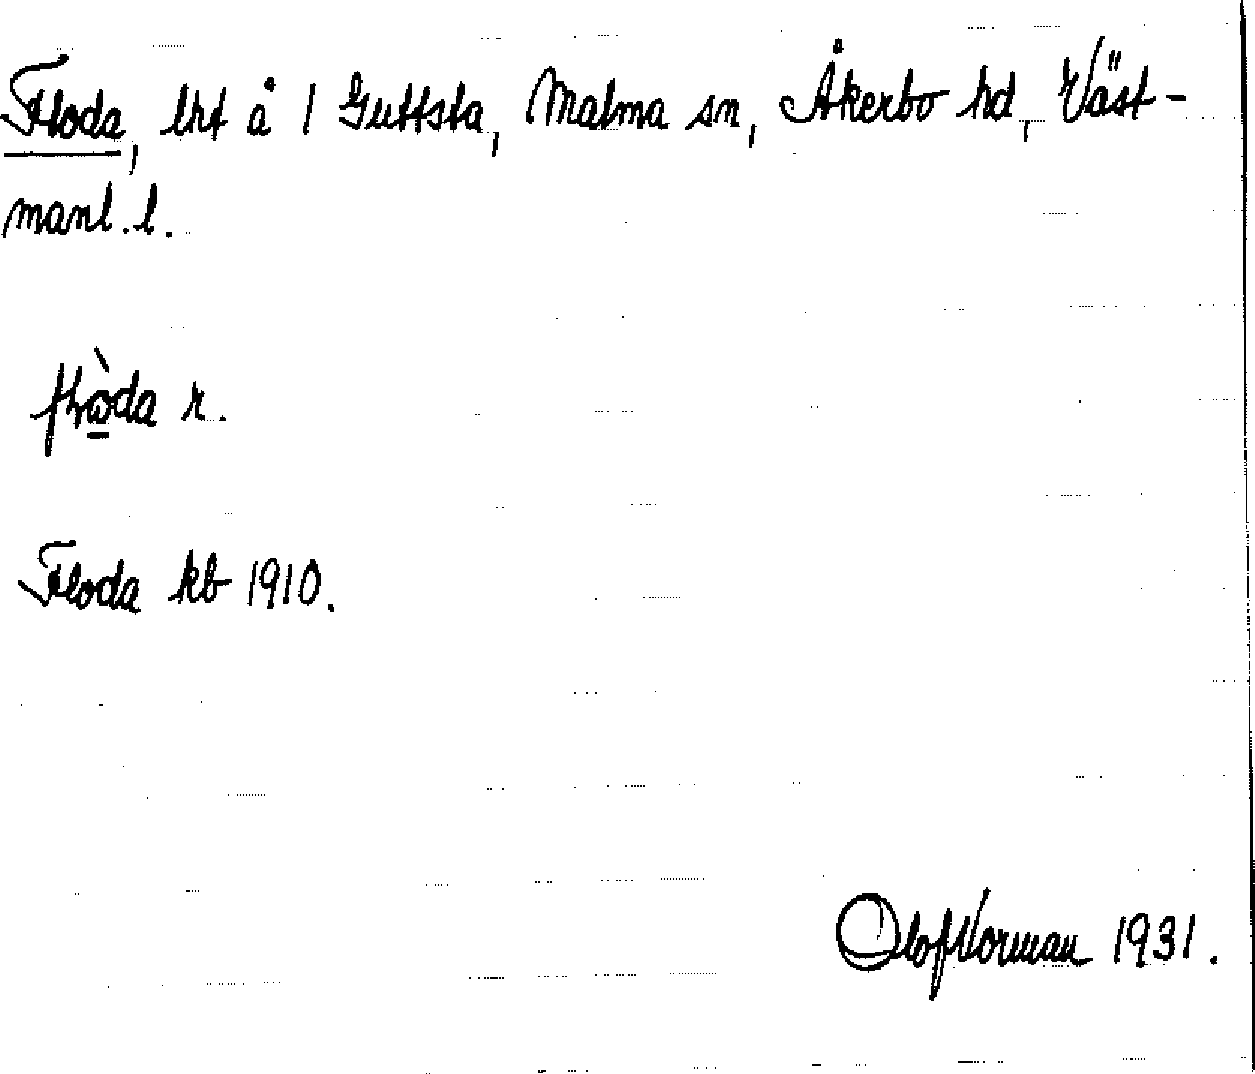 Floda, lht å 1 Guttsta, Malma sn, Åkerbo hd, Väst-
manl. l.
r.
Floda kb 1910.
Olof Norman 1931.